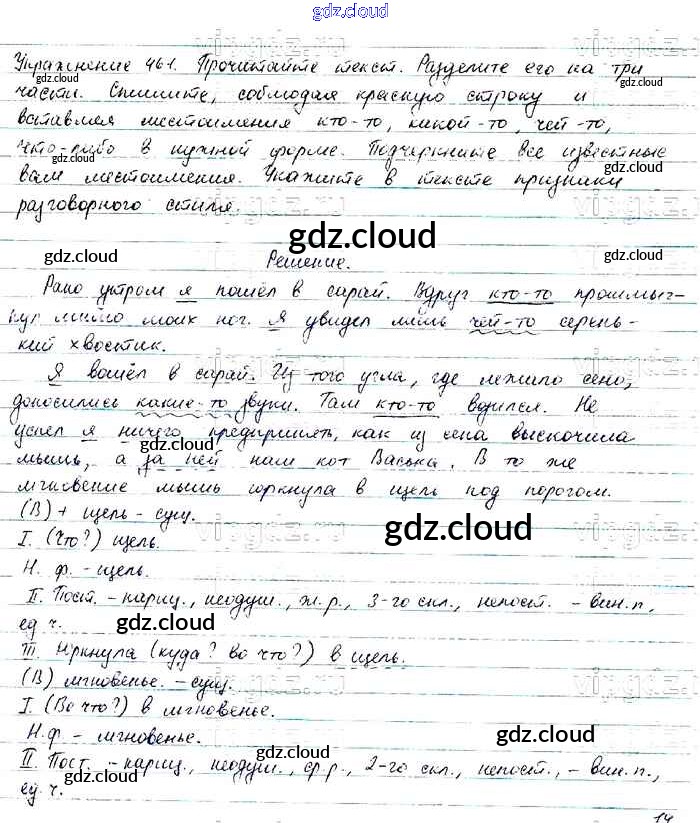 gdz.cloud
Упражнение 461. Прочитайте текст. Разделите его на три
части. Спишите, соблюдая красную строку и
вставляя местоимения кто-то, какой-то, чей-то,
что-либо в нужной форме. Подчеркните все известные
вам местоимения. Укажите в тексте признаки
разговорного стиля.
gdz.cloud
Решение.
Рано утром я пошёл в сарай. Вдруг кто-то прошмыг-
нул мимо моих ног. Я увидел лишь чей-то серень-
кий хвостик.
Я вошёл в сарай. Из того угла, где лежало сено,
доносились какие-то звуки. Там кто-то водился. Не
успел я ничего предпринять, как из сена выскочила
мышь, а за ней нам кот Васька. В то же
мгновение мышь юркнула в щель под порогом.
(В) + щель - сущ.
I. (Что?) щель.
Н. ф. - щель.
II. Пост. - нариц., неодуш., ж. р., 3-го скл., непост. - вин. п.,
ед. ч.
III Юркнула (куда? во что?) в щель.
(В) мгновенье. - сущ.
I. (Во что?) в мгновенье.
Н. ф - мгновенье.
II. Пост. - нариц., неодуш., ср. р., 2-го скл., непост., - вин. п.,
ед. ч.
14